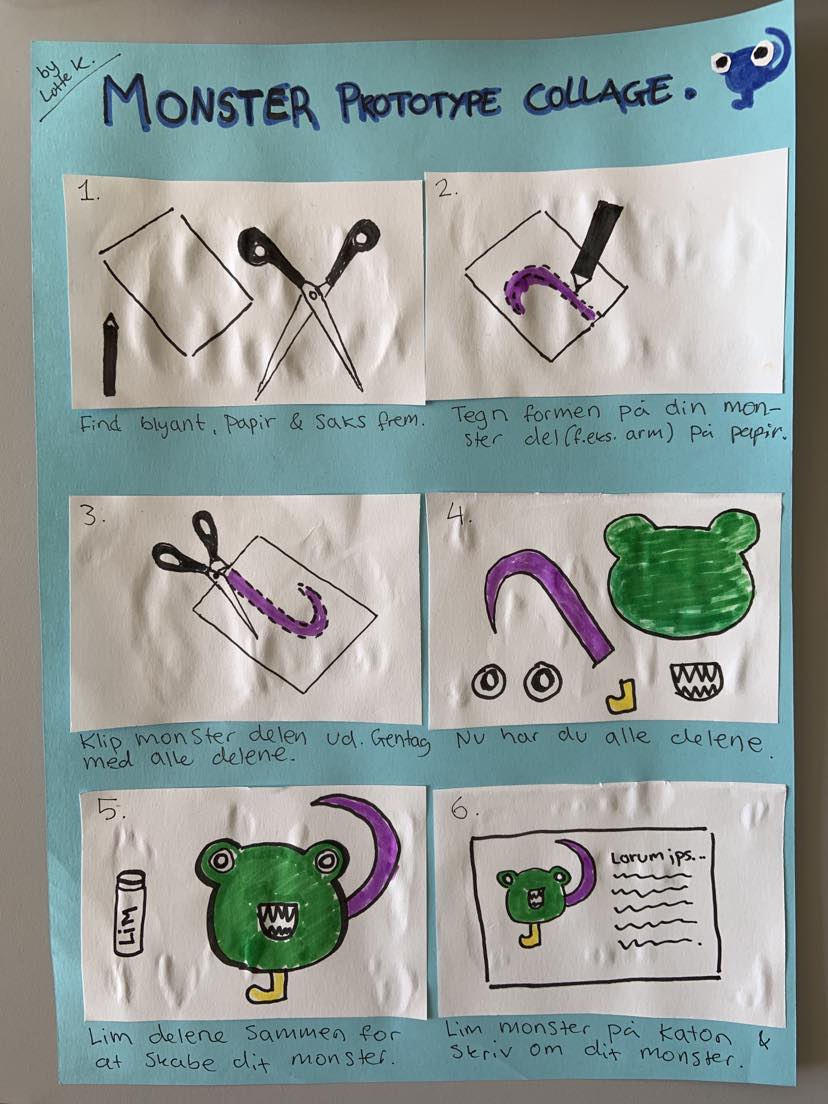 by
Lotte K.
MONSTER PROTOTYPE COLLAGE.
1.
Find blyant, papir & saks frem.
2.
Tegn formen på din mon-
ster del (f.eks. arm) på papir.
3.
Klip monster delen ud. Gentag
med alle delene.
4.
Nu har du alle delene.
5.
LIM
Lim delene sammen for
at skabe dit monster.
6.
Lorum ips...
Lim monster på katon &
skriv om dit monster.